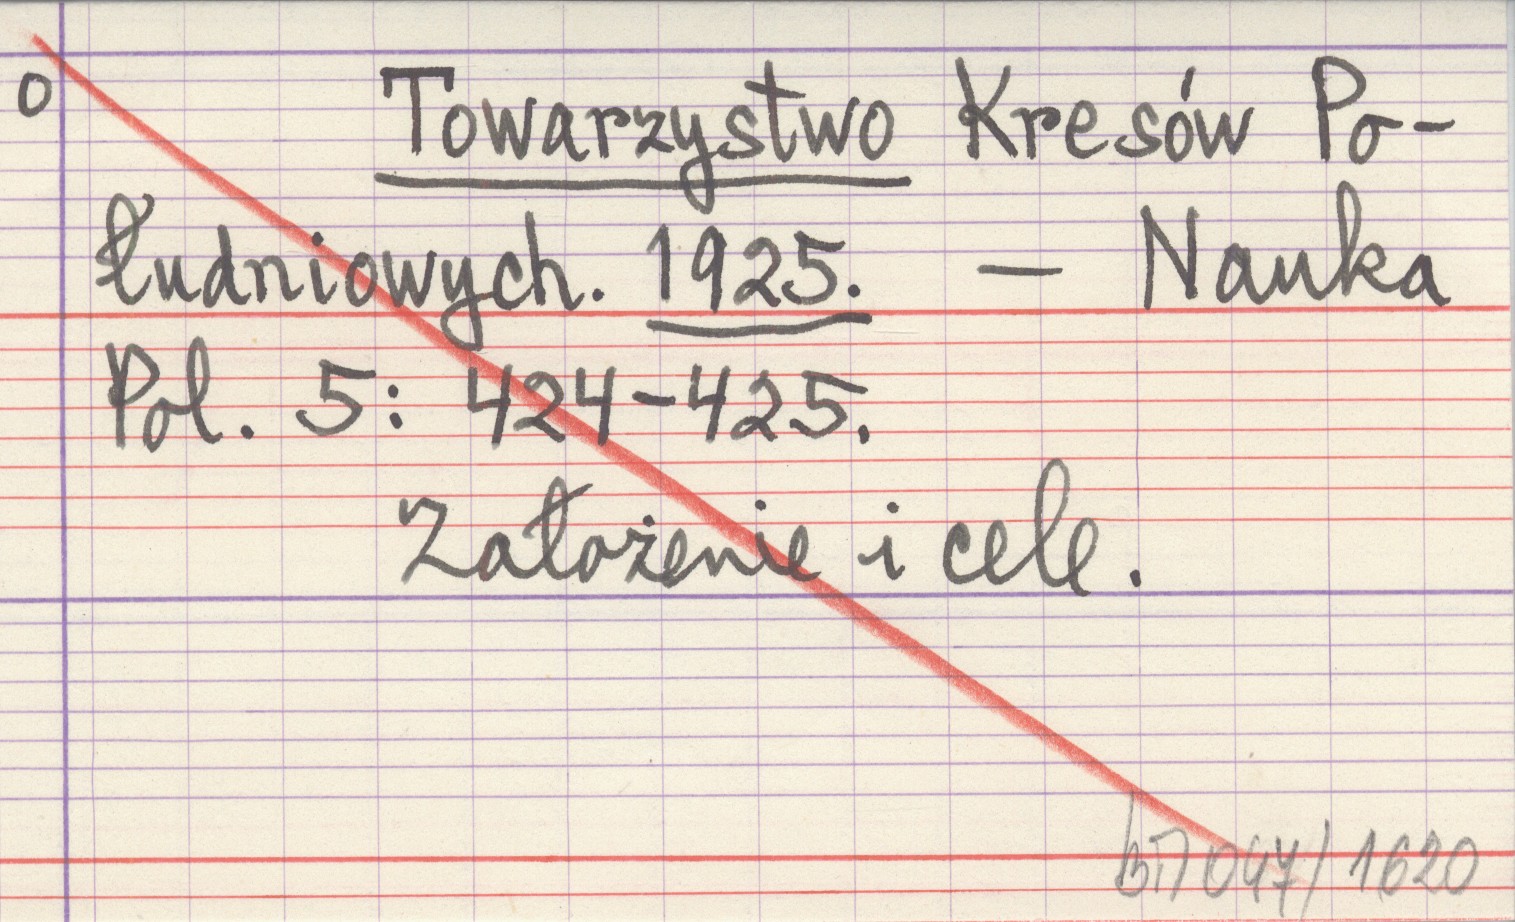 0
Towarzystwo Kresów Po-
łudniowych. 1925. — Nauka
Pol. 5: 424-425.
Założenie i cele.
047/1620